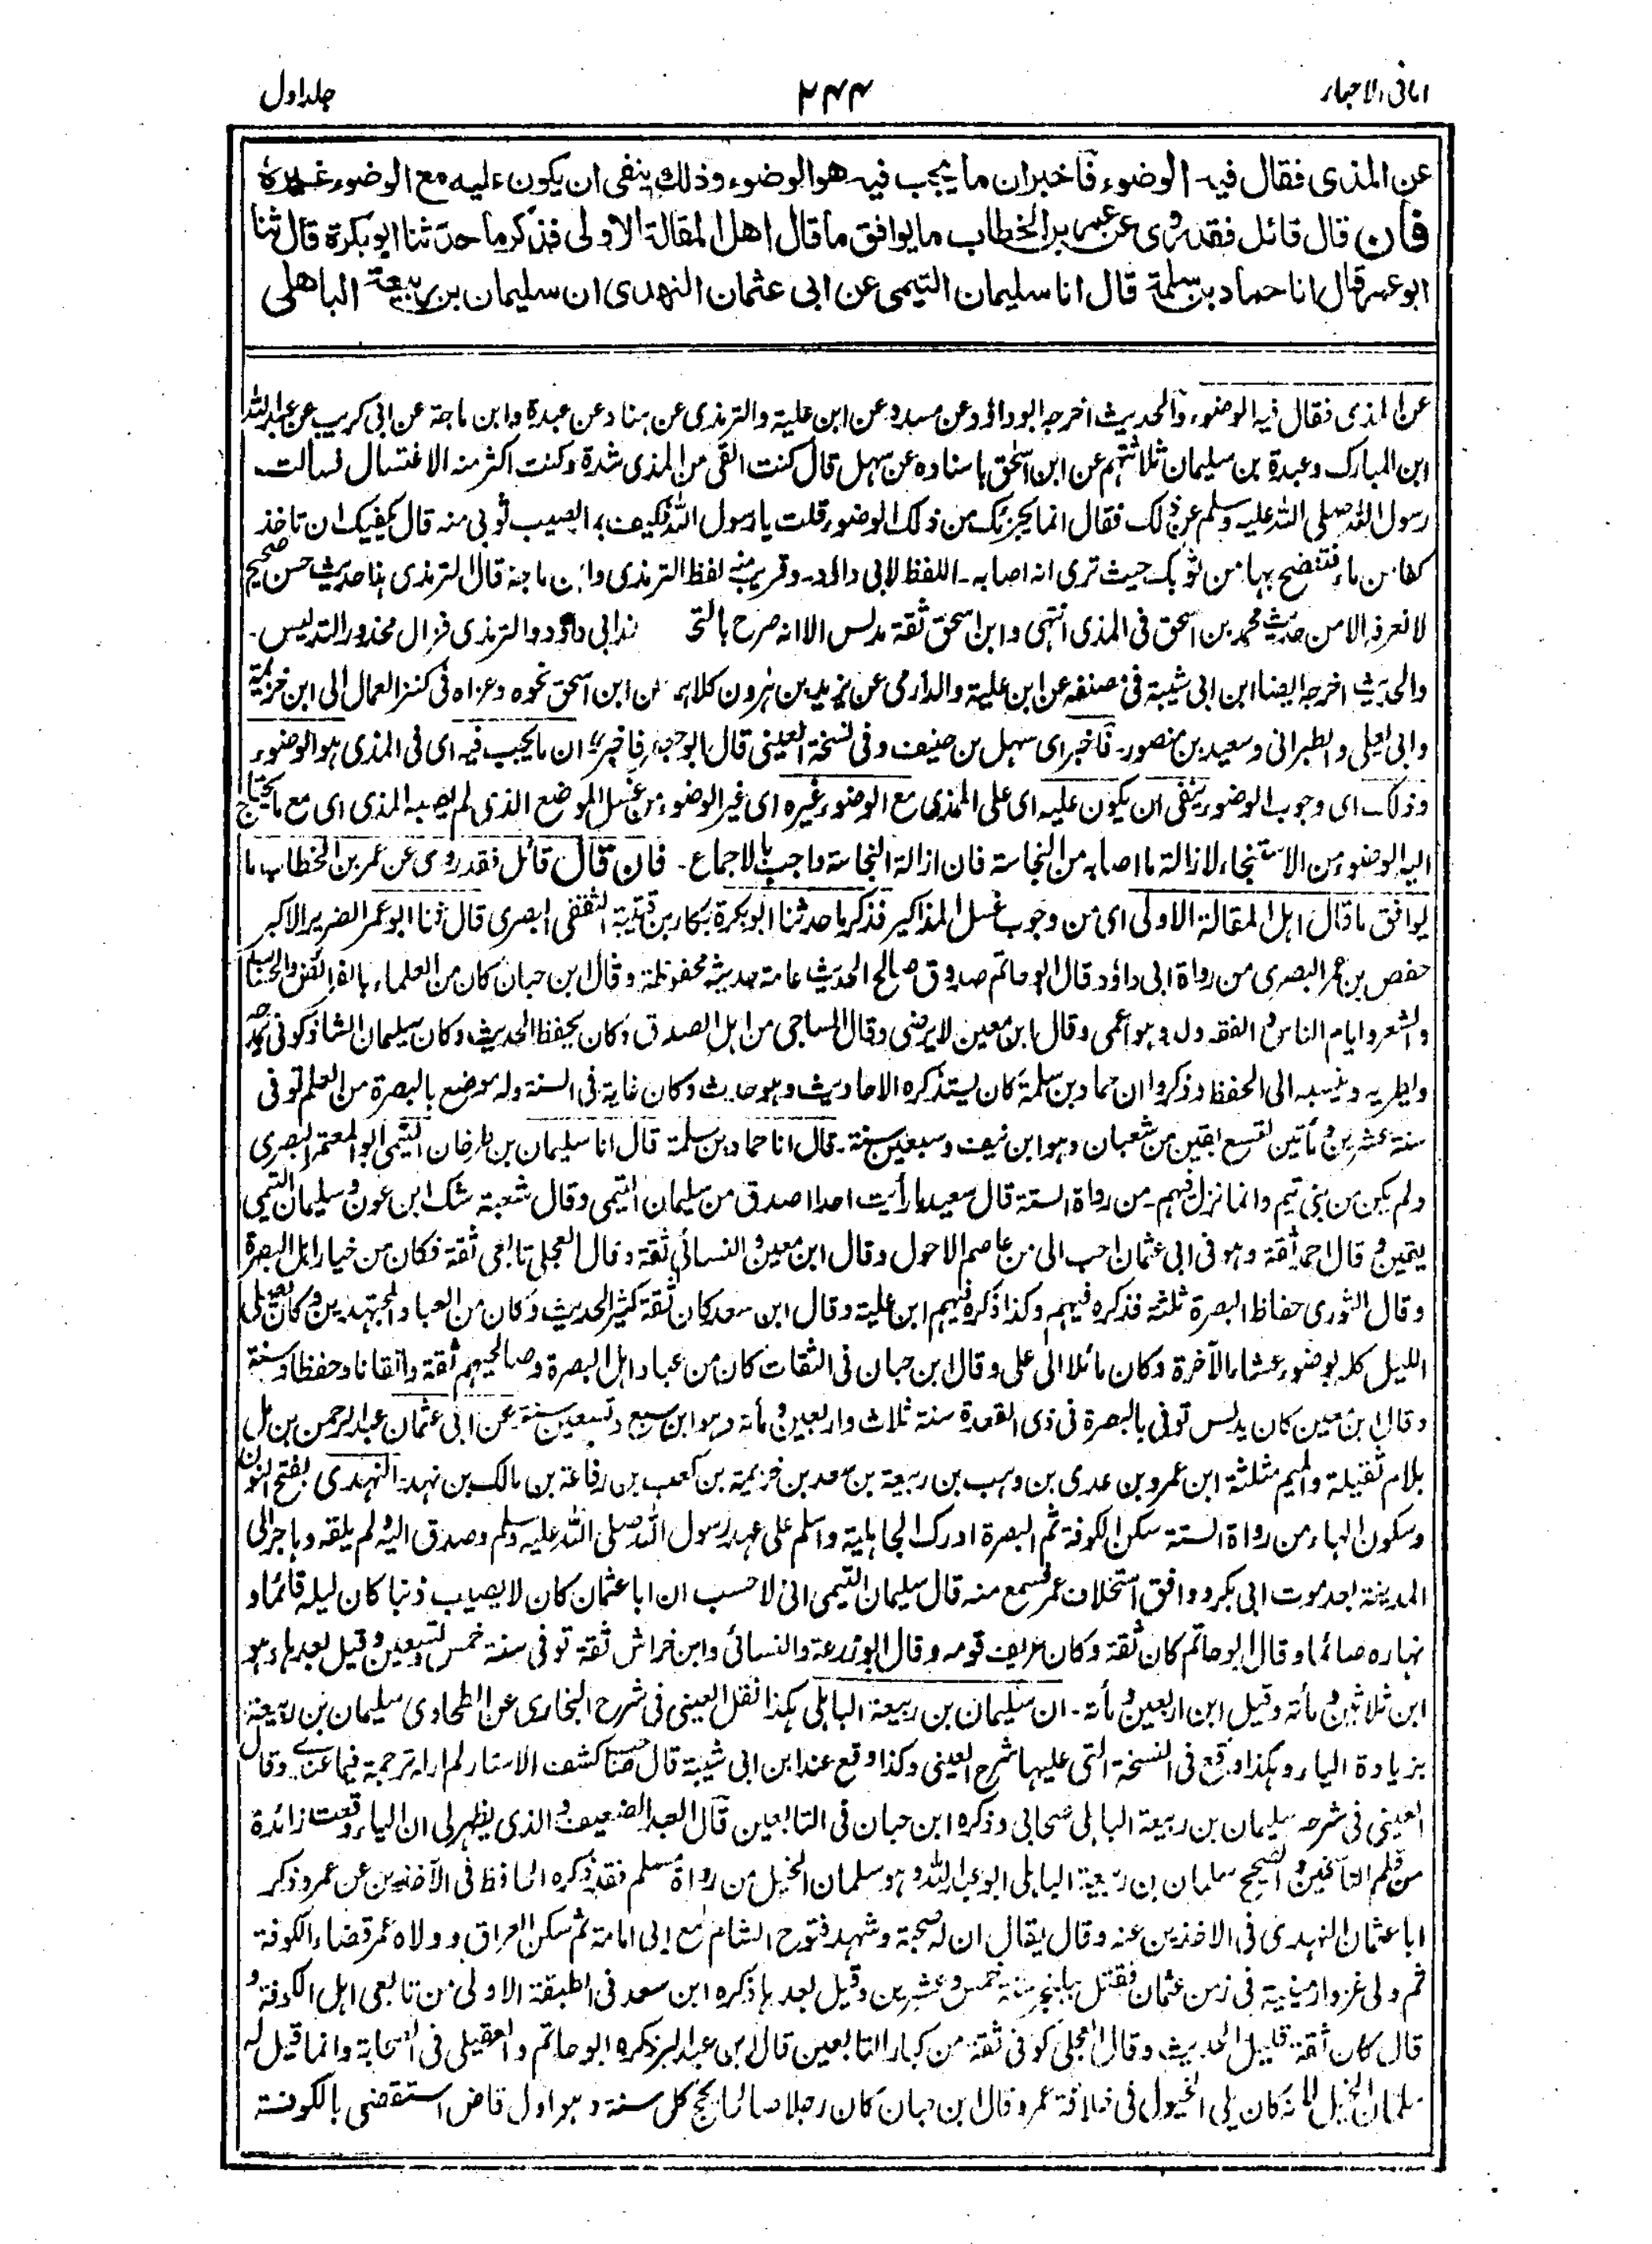 امانی الاحبار
۲۴۴
جلد اول
عن المذی فقال فیه الوضوء فأخبر ان ما یجب فیه هو الوضوء وذلك ینفی ان یکون علیه مع الوضوء غیره
فأن قال قائل فقد روی عن عمر بن الخطاب ما یوافق ما قال اهل المقالة الاولی فذکر ما حدثنا ابو بکرة قال ثنا
ابو عمر قال انا حماد بن سلمة قال انا سلیمان التیمی عن ابی عثمان النهدی ان سلیمان بن ربیعة الباهلی
عن المذی فقال فیه الوضوء والحدیث اخرجه ابو داؤد عن مسدد عن ابن علیة والترمذی عن هناد عن عبدة وابن ماجة عن ابی کریب عن عبد الله
ابن المبارک وعبدة بن سلیمان ثلاثتهم عن ابن اسحق باسناده عن سهل قال کنت القی من المذی شدة وکنت اکثر منه الاغتسال فسالت
رسول الله صلی الله علیه وسلم عن ذلک فقال انما یجزیک من ذلک الوضوء قلت یا رسول الله فکیف بما یصیب ثوبی منه قال یکفیک ان تاخذ
کفا من ماء فتنضح بها من ثوبک حیث تری انه اصابه۔ اللفظ لابی داؤد۔ وقریب منه لفظ الترمذی وابن ماجة قال الترمذی هذا حدیث حسن صحیح
لا نعرفه الا من حدیث محمد بن اسحق فی المذی انتهی وابن اسحق ثقة مدلس الا انه صرح بالتح ند ابی داؤد والترمذی فزال محذور التدلیس۔
والحدیث اخرجه ایضا ابن ابی شیبة فی مصنفه عن ابن علیة والدارمی عن یزید بن هرون کلاهما عن ابن اسحق نحوه وعزاه فی کنز العمال الی ابن خزیمة
وابی یعلی والطبرانی وسعید بن منصور۔ فأخبر ای سهل بن حنیف وفی نسخة العینی قال ابو جعفر فاخبر ان ما یجب فیه ای فی المذی هو الوضوء
وذلک ای وجوب الوضوء ینفی ان یکون علیه ای علی المذی مع الوضوء غیره ای غیر الوضوء من غسل الموضع الذی لم یصبه المذی ای مع ما یحتاج
الیه الوضوء من الاستنجاء لازالة ما اصابه من النجاسة فان ازالة النجاسة واجب بالاجماع۔ فان قال قائل فقد روی عن عمر بن الخطاب ما
یوافق ما قال اهل المقالة الاولی ای من وجوب غسل المذاکیر فذکر ما حدثنا ابو بکرة بکار بن قتیبة الثقفی البصری قال ثنا ابو عمر الضریر الاکبر
حفص بن عمر البصری من رواة ابی داؤد قال ابو حاتم صدوق صالح الحدیث عامة حدیثه محفوظة وقال ابن حبان کان من العلماء بالفرائض والحساب
والشعر وایام الناس والفقه ولد وهو اعمی وقال ابن معین لا یرضی وقال الساجی من اهل الصدق وکان یحفظ الحدیث وکان سلیمان الشاذکونی یمدحه
ویطریه وینسبه الی الحفظ وذکروا ان حماد بن سلمة کان یستذکره الاحادیث وهو حدث وکان غایة فی السنة وله موضع بالبصرة من العلم توفی
سنة عشرین ومأتین لتسع بقین من شعبان وهو ابن نیف وسبعین سنة۔ قال انا حماد بن سلمة قال انا سلیمان بن طرخان التیمی ابو المعتمر البصری
ولم یکن من بنی تیم وانما نزل فیهم۔ من رواة الستة قال سعید ما رأیت احدا اصدق من سلیمان التیمی وقال شعبة شک ابن عون وسلیمان التیمی
یقین وقال احمد ثقة وهو فی ابی عثمان احب الی من عاصم الاحول وقال ابن معین والنسائی ثقة وقال العجلی تابعی ثقة فکان من خیار اهل البصرة
وقال الثوری حفاظ البصرة ثلثة فذکره فیهم وکذا ذکره فیهم ابن علیة وقال ابن سعد کان ثقة کثیر الحدیث وکان من العباد المجتهدین وکان یصلی
اللیل کله بوضوء عشاء الآخرة وکان مائلا الی علی وقال ابن حبان فی الثقات کان من عباد اهل البصرة وصالحیهم ثقة واتقانا وحفظا وسنة
وقال ابن معین کان یدلس توفی بالبصرة فی ذی القعدة سنة ثلاث واربعین ومأة وهو ابن سبع وتسعین سنة۔ عن ابی عثمان عبد الرحمن بن مل
بلام ثقیلة والمیم مثلثة ابن عمرو بن عدی بن وهب بن ربیعة بن سعد بن خزیمة بن کعب بن رفاعة بن مالک بن نهد۔ النهدی بفتح النون
وسکون الهاء من رواة الستة سکن الکوفة ثم البصرة ادرک الجاهلیة واسلم علی عهد رسول الله صلی الله علیه وسلم وصدق الیه ولم یلقه وهاجر الی
المدینة بعد موت ابی بکر ووافق استخلاف عمر فسمع منه قال سلیمان التیمی انی لاحسب ان ابا عثمان کان لا یصیب ذنبا کان لیله قائما و
نهاره صائما وقال ابو حاتم کان ثقة وکان عریف قومه وقال ابو زرعة والنسائی وابن خراش ثقة توفی سنة خمس وتسعین وقیل بعدها وهو
ابن ثلاثین ومأة وقیل ابن اربعین ومأة۔ ان سلیمان بن ربیعة الباهلی هکذا نقل العینی فی شرح البخاری عن الطحاوی سلیمان بن ربیعة
بزیادة الیاء وهکذا وقع فی النسخة التی علیها شرح العینی وکذا وقع عند ابن ابی شیبة قال صاحب کشف الاستار لم ار له ترجمة فیما عندی وقال
العینی فی شرحه سلیمان بن ربیعة الباهلی صحابی وذکره ابن حبان فی التابعین قال العبد الضعیف والذی یظهر لی ان الیاء وقعت زائدة
من قلم الناسخین والصحیح سلمان بن ربیعة الباهلی ابو عبد الله وهو سلمان الخیل من رواة مسلم فقد ذکره الحافظ فی الآخذین عن عمر وذکر
ابا عثمان النهدی فی الاخذین عنه وقال یقال ان له صحبة وشهد فتوح الشام مع ابی امامة ثم سکن العراق وولاه عمر قضاء الکوفة
ثم ولی غزو ارمینیة فی زمن عثمان فقتل ببلنجر سنة خمس وعشرین وقیل بعدها ذکره ابن سعد فی الطبقة الاولی من تابعی اهل الکوفة و
قال کان ثقة قلیل الحدیث وقال العجلی کوفی ثقة من کبار التابعین قال ابن عبد البر ذکره ابو حاتم والعقیلی فی الصحابة وانما قیل له
سلمان الخیل لانه کان یلی الخیول فی خلافة عمر وقال ابن حبان کان رجلا صالحا یحج کل سنة وهو اول قاض استقضی بالکوفة